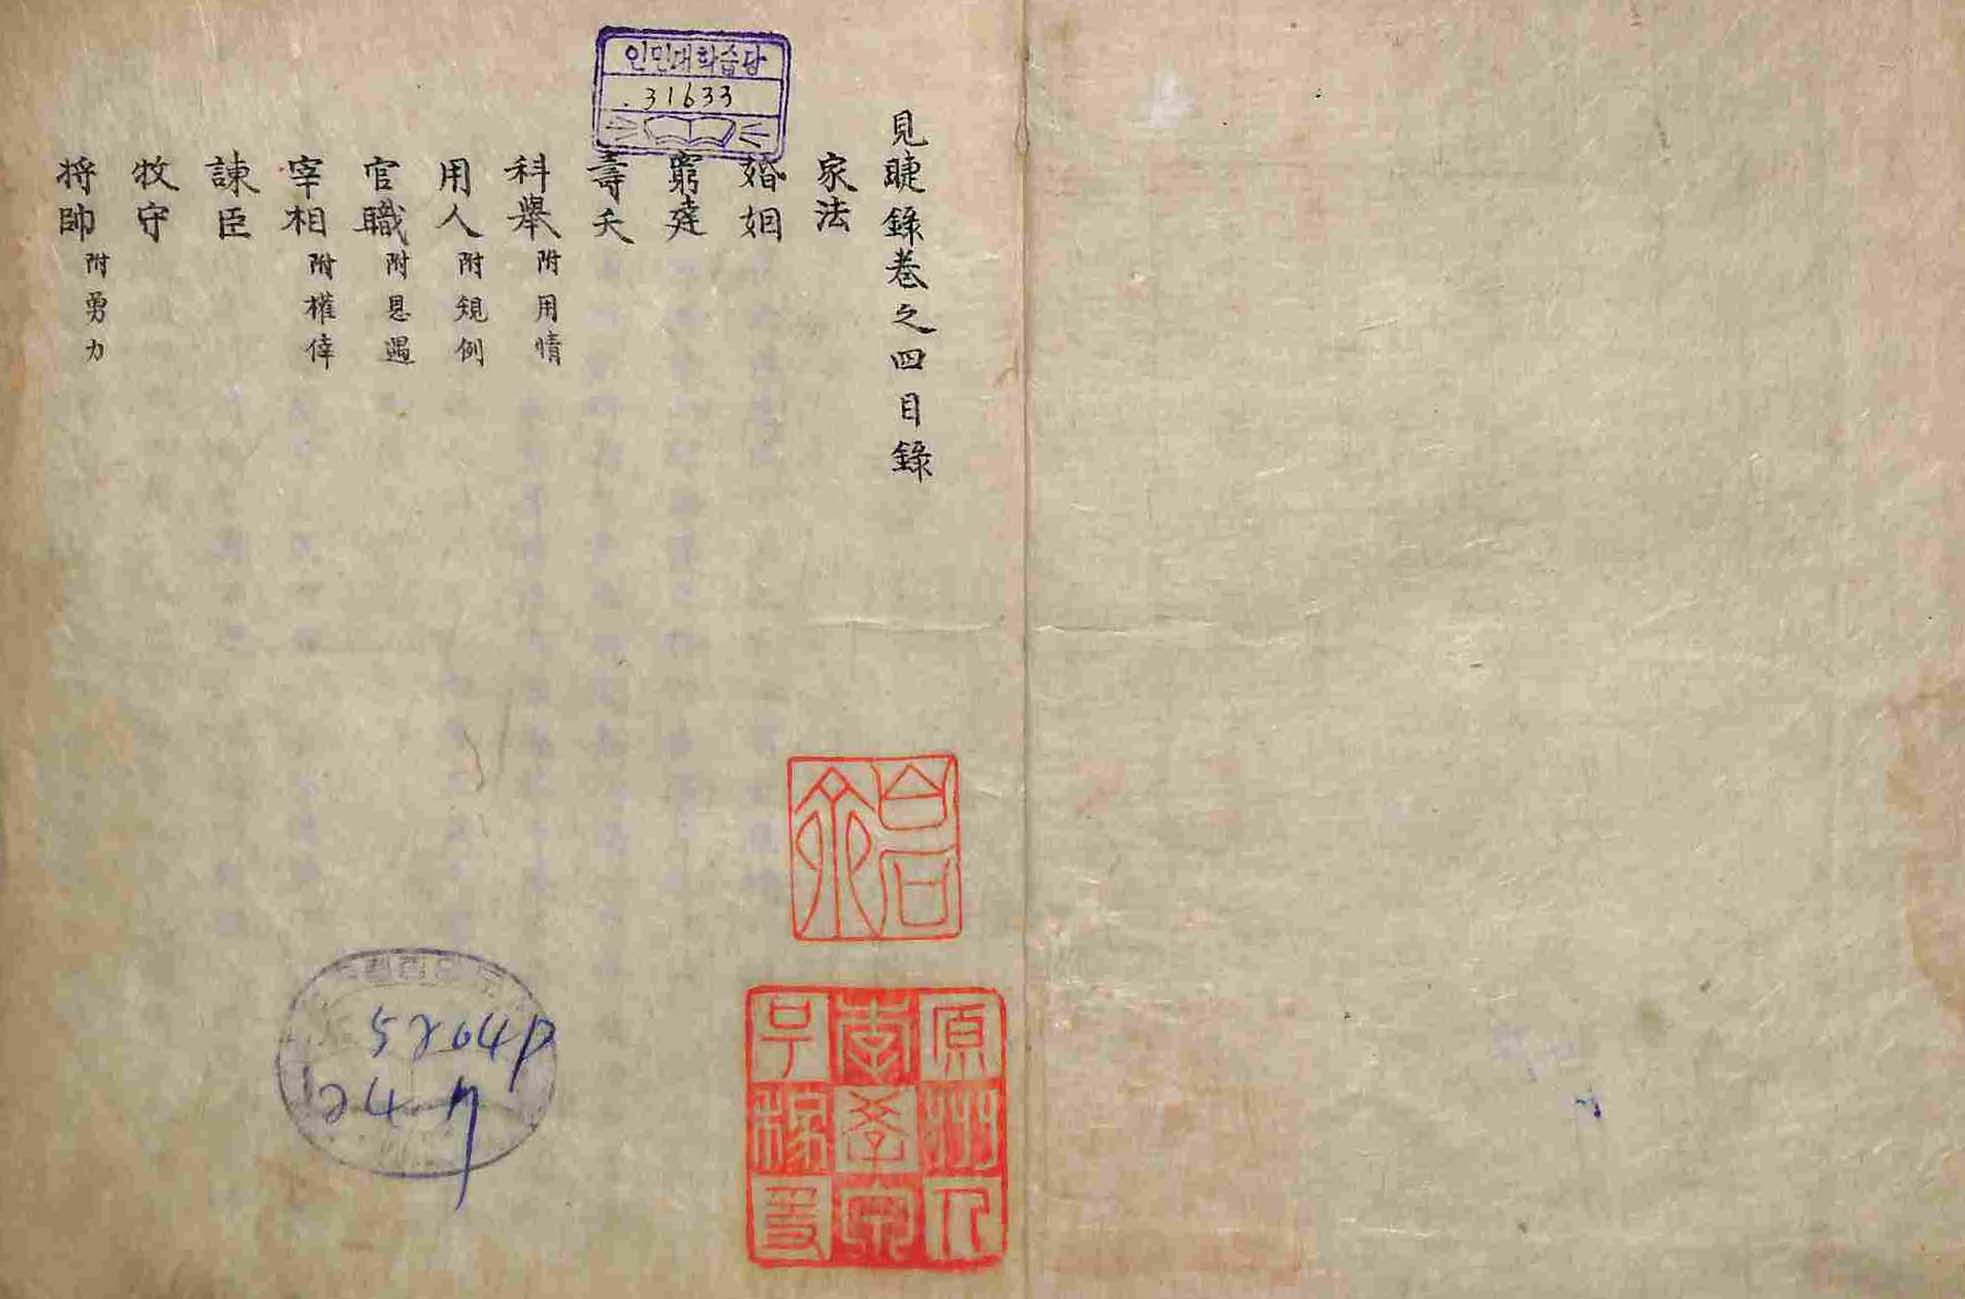 見睫錄卷之四目錄
家法
婚姻
窮達
壽夭
科舉 附用情
用人 附規例
官職 附恩遇
宰相 附權倖
諫臣
牧守
將帥 附勇力
인민대학습당
31633
原州人